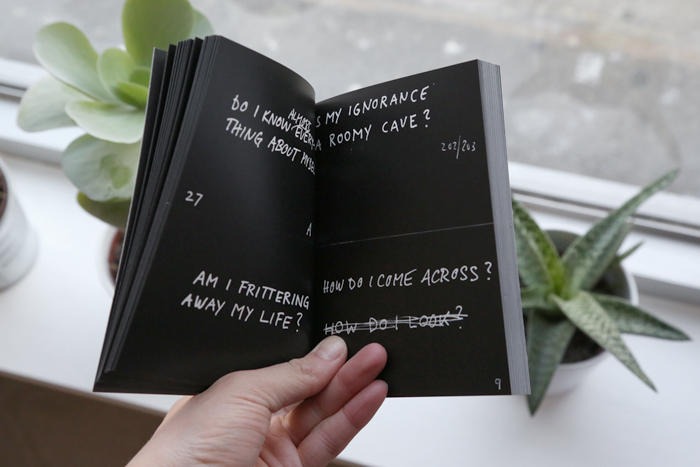 DO I KNOW ALMOST
THING ABOUT
27
A
AM I FRITTERING
AWAY MY LIFE?
S MY IGNORANCE
A ROOMY CAVE?
202/203
HOW DO I COME ACROSS?
HOW DO I LOOK?
9